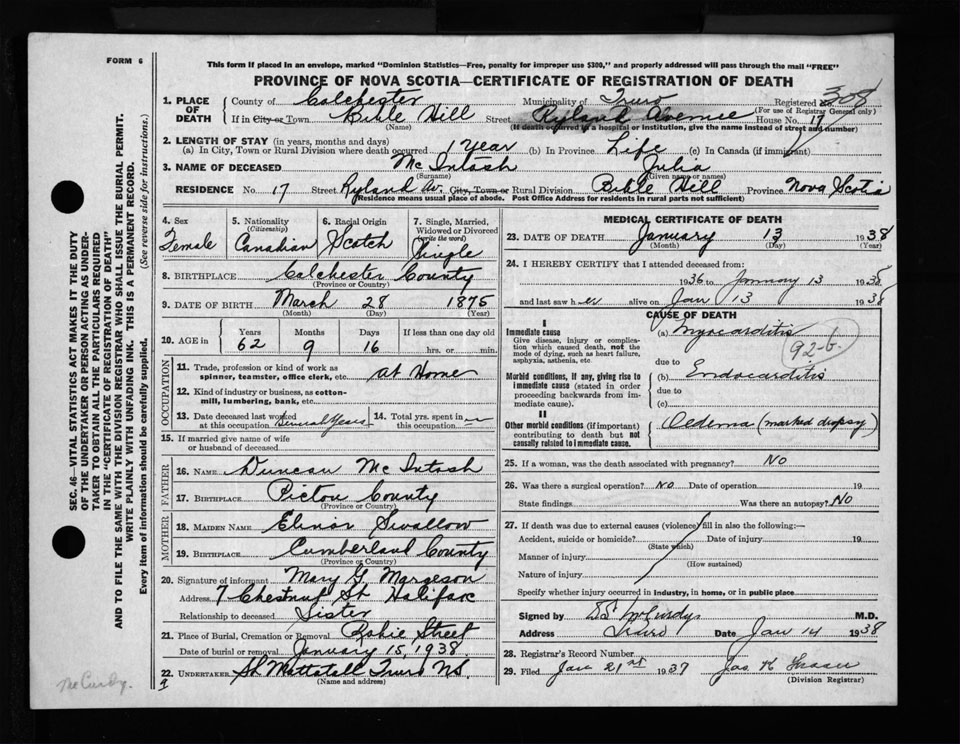 FORM 6
This form if placed in an envelope, marked "Dominion Statistics—Free, penalty for improper use $300," and properly addressed will pass through the mail "FREE"
PROVINCE OF NOVA SCOTIA—CERTIFICATE OF REGISTRATION OF DEATH
1. PLACE OF DEATH County of Colchester Municipality of Truro Registered No. 308
(For use of Registrar General only)
If in City or Town Bible Hill Street Ryland Avenue House No. 17
(Name) (If death occurred in a hospital or institution, give the name instead of street and number)
2. LENGTH OF STAY (in years, months and days)
(a) In City, Town or Rural Division where death occurred 1 year (b) In Province Life (c) In Canada (if immigrant)
3. NAME OF DECEASED McIntosh Julia
(Surname) (Given name or names)
RESIDENCE No. 17 Street Ryland Av. City, Town or Rural Division Bible Hill Province Nova Scotia
(Residence means usual place of abode. Post Office Address for residents in rural parts not sufficient)
4. Sex Female
5. Nationality (Citizenship) Canadian
6. Racial Origin Scotch
7. Single, Married, Widowed or Divorced (write the word) Single
8. BIRTHPLACE Colchester County
(Province or Country)
9. DATE OF BIRTH March 28 1875
(Month) (Day) (Year)
10. AGE in Years 62 Months 9 Days 16 If less than one day old
hrs. or min.
OCCUPATION
11. Trade, profession or kind of work as spinner, teamster, office clerk, etc. at Home
12. Kind of industry or business, as cotton-mill, lumbering, bank, etc.
13. Date deceased last worked at this occupation Several years 14. Total yrs. spent in this occupation
15. If married give name of wife or husband of deceased
FATHER
16. NAME Duncan McIntosh
17. BIRTHPLACE Pictou County
(Province or Country)
MOTHER
18. MAIDEN NAME Elinor Swallow
19. BIRTHPLACE Cumberland County
(Province or Country)
20. Signature of informant Mary G. Margeson
Address 7 Chestnut St Halifax
Relationship to deceased Sister
21. Place of Burial, Cremation or Removal Robie Street
Date of burial or removal January 15, 1938
22. UNDERTAKER Mattatall Truro N.S.
(Name and address)
MEDICAL CERTIFICATE OF DEATH
23. DATE OF DEATH January 13 1938
(Month) (Day) (Year)
24. I HEREBY CERTIFY that I attended deceased from:
1936 to January 13 1938
and last saw her alive on Jan 13 1938
CAUSE OF DEATH
I
Immediate cause
Give disease, injury or complication which caused death, not the mode of dying, such as heart failure, asphyxia, asthenia, etc
(a) Myocarditis
92-b
due to
Morbid conditions, if any, giving rise to immediate cause (stated in order proceeding backwards from immediate cause).
(b) Endocarditis
due to
(c)
II
Other morbid conditions (if important) contributing to death but not causally related to immediate cause.
Oedema (marked dropsy)
25. If a woman, was the death associated with pregnancy? No
26. Was there a surgical operation? No Date of operation 19
State findings Was there an autopsy? No
27. If death was due to external causes (violence) fill in also the following:—
Accident, suicide or homicide? Date of injury 19
(State which)
Manner of injury
(How sustained)
Nature of injury
Specify whether injury occurred in industry, in home, or in public place
Signed by McCurdy M.D.
Address Truro Date Jan 14 1938
28. Registrar's Record Number
29. Filed Jan 21st 1937 Jas
(Division Registrar)
SEC. 46—VITAL STATISTICS ACT MAKES IT THE DUTY
OF THE UNDERTAKER OR PERSON ACTING AS UNDER-
TAKER TO OBTAIN ALL THE PARTICULARS REQUIRED
IN THE "CERTIFICATE OF REGISTRATION OF DEATH"
AND TO FILE THE SAME WITH THE DIVISION REGISTRAR WHO SHALL ISSUE THE BURIAL PERMIT.
WRITE PLAINLY WITH UNFADING INK. THIS IS A PERMANENT RECORD.
Every item of information should be carefully supplied. (See reverse side for instructions.)